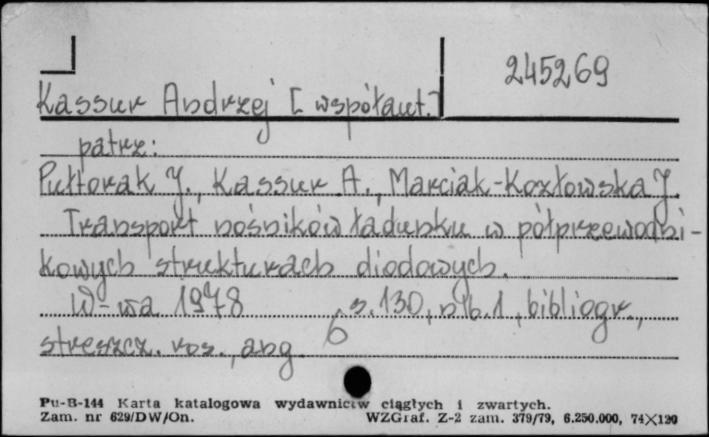 245269
Kassur Andrzej [współaut.]
patrz:
Pułtorak J., Kassur A., Marciak-Kozłowska J.
Transport nośników ładunku w półprzewodni-
kowych strukturach diodowych.
W-wa 1978 s. 130, nlb. 1, bibliogr.,
streszcz. ros., ang. 6
Pu-B-144 Karta katalogowa wydawnictw ciągłych i zwartych.
Zam. nr 629/DW/On. WZGraf. Z-2 zam. 379/79, 6.250.000, 74×120